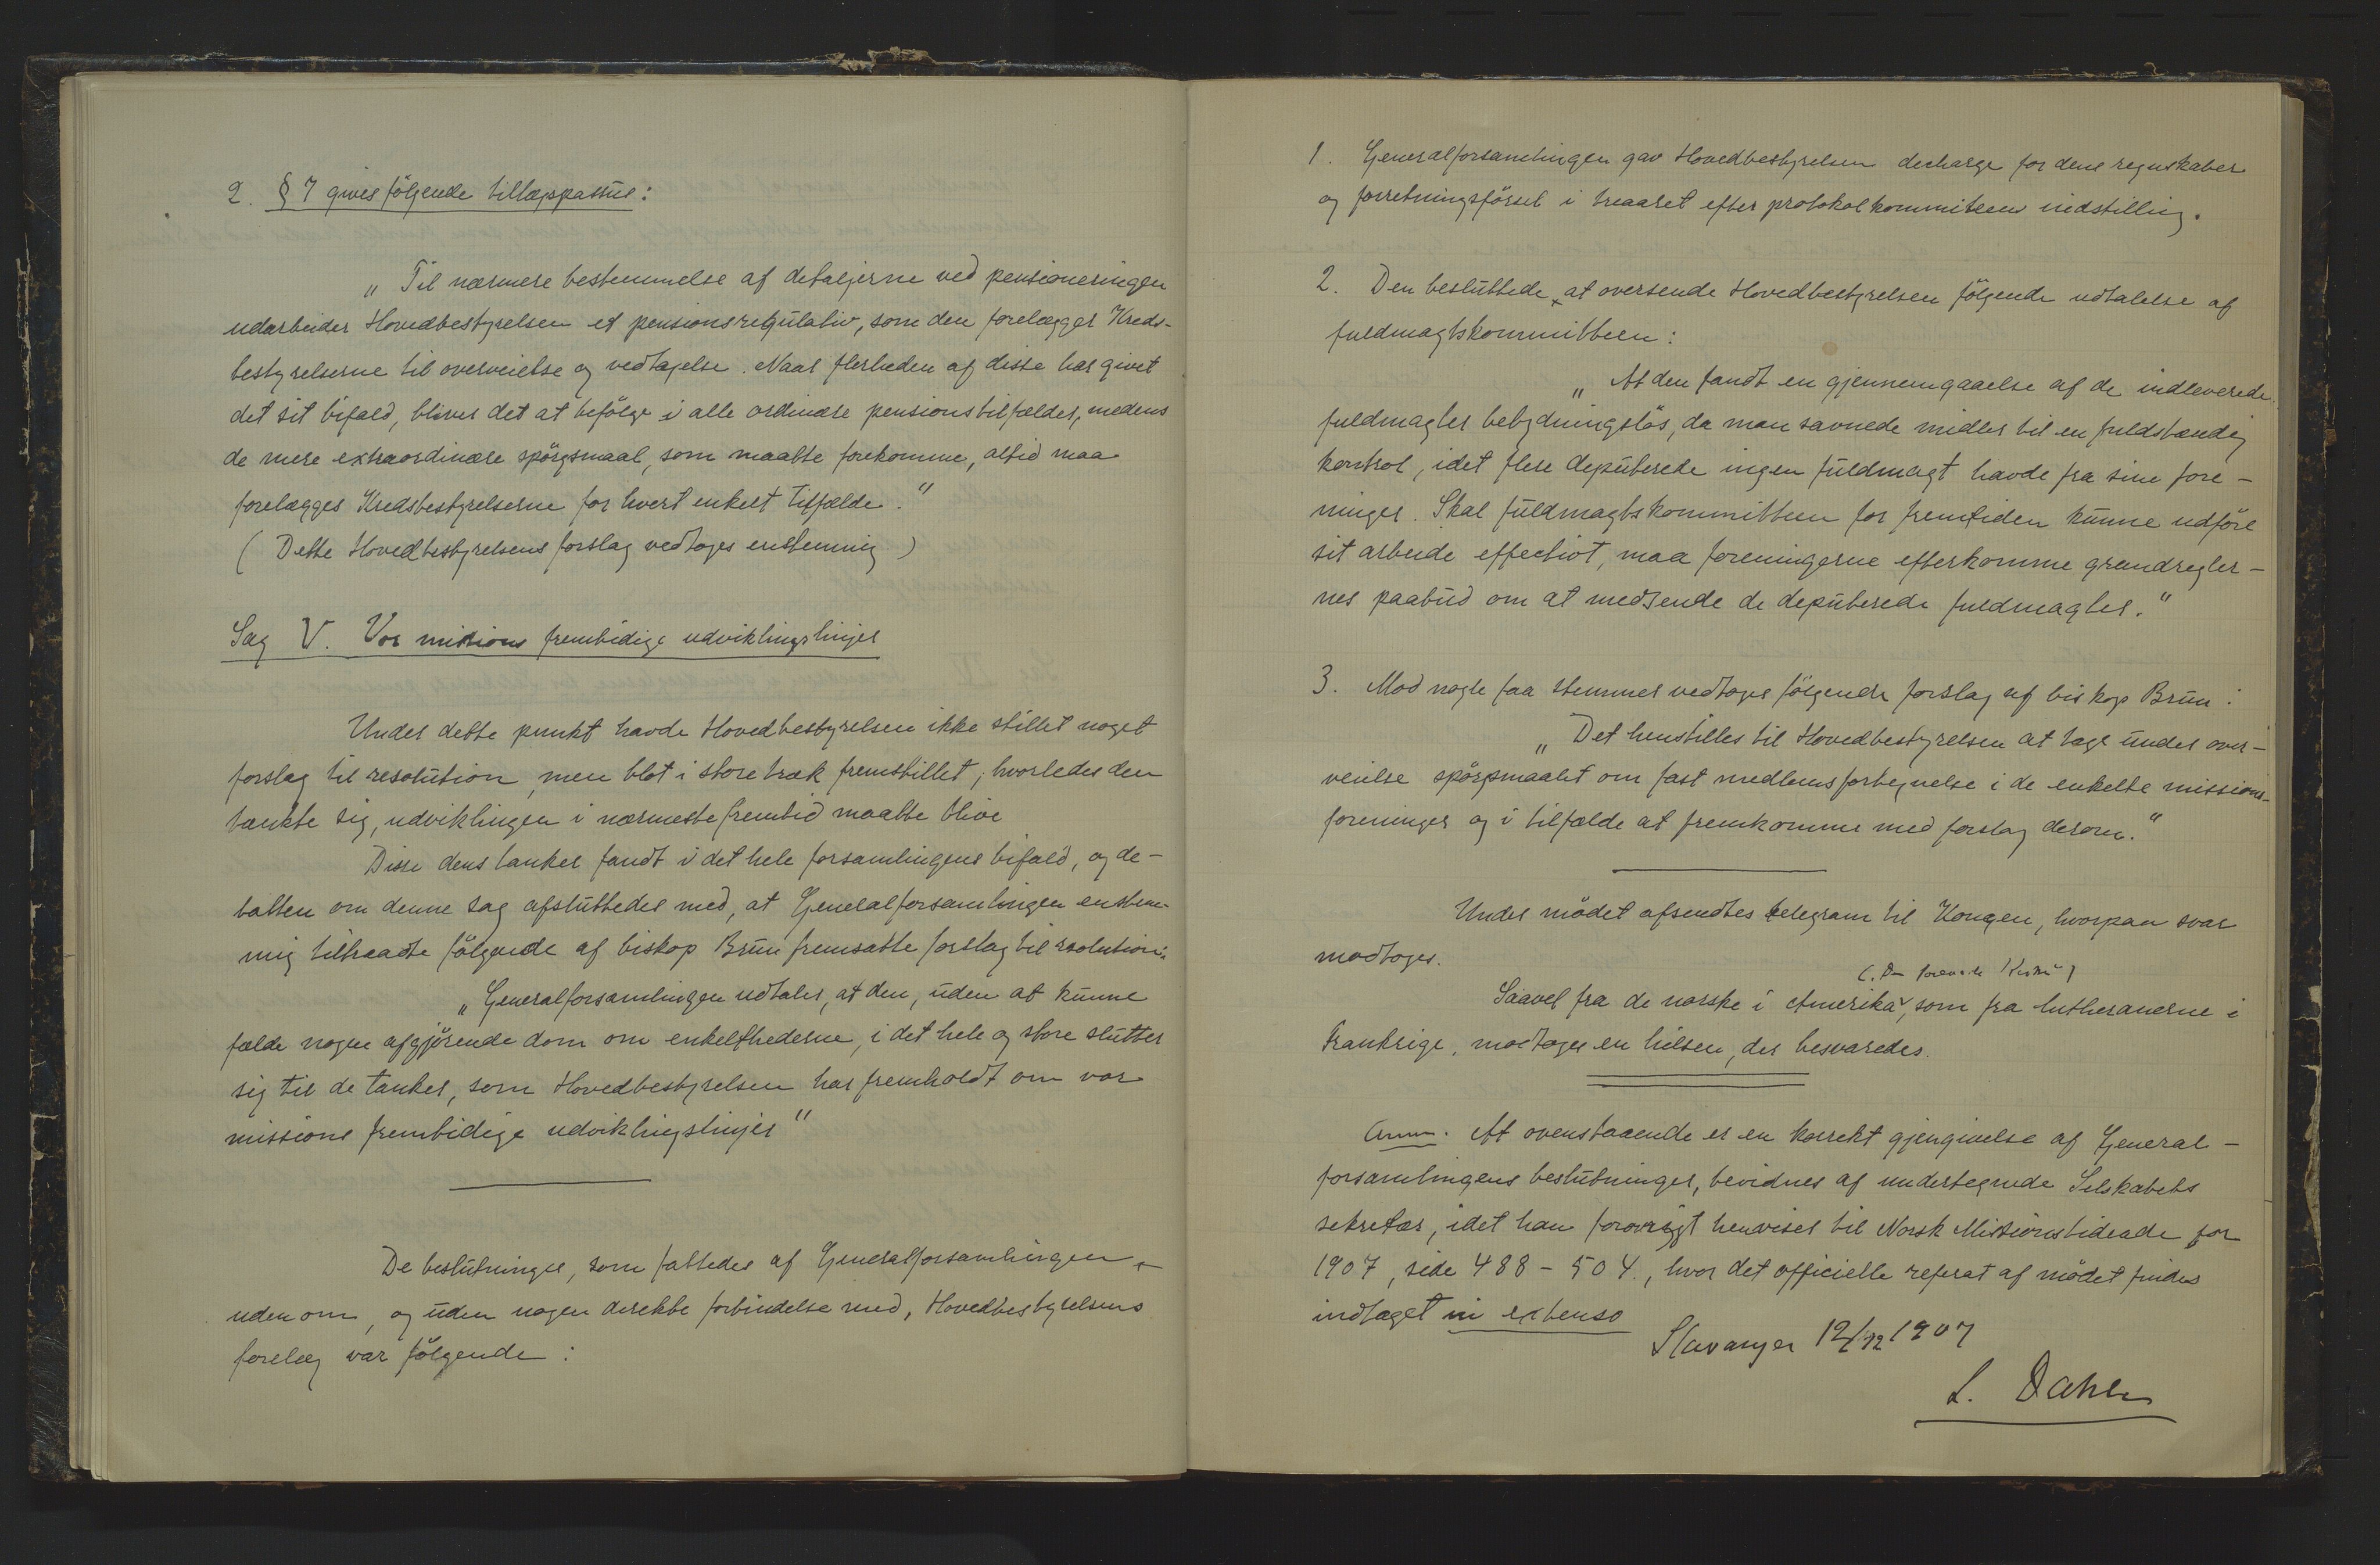 2. § 7 gives følgende tillægspassus:
„Til nærmere bestemmelse af detaljerne ved pensioneringen
udarbeider Hovedbestyrelsen et pensionsregulativ, som den forelægger Kreds-
bestyrelserne til overveielse og vedtagelse. Naar flerheden af disse har givet
det sit bifald, bliver det at befölge i alle ordinære pensionstilfælder, medens
de mere extraordinære spörgsmaal, som maatte forekomme, altid maa
forelægges Kredsbestyrelserne for hvert enkelt tilfælde."
(Dette Hovedbestyrelsens forslag vedtoges enstemmig)
Sag V. Vor missions fremtidige udviklingslinjer
Under dette punkt havde Hovedbestyrelsen ikke stillet noget
forslag til resolution, men blot i store træk fremstillet, hvorledes den
tænkte sig, udviklingen i nærmeste fremtid maatte blive
Disse dens tanker fandt i det hele forsamlingens bifald, og de-
batten om denne sag afsluttedes med, at Generalforsamlingen enstem-
mig tiltraadte fölgende af biskop Brun fremsatte forslag til resolution:
„Generalforsamlingen udtaler, at den, uden at kunne
fælde nogen afgjörende dom om enkelthederne, i det hele og store slutter
sig til de tanker, som Hovedbestyrelsen har fremholdt om vor
missions fremtidige udviklingslinjer"
De beslutninger, som fattedes af Generalforsamlingen
uden om, og uden nogen direkte forbindelse med, Hovedbestyrelsens
forelæg var fölgende:
1. Generalforsamlingen gav Hovedbestyrelsen decharge for dens regnskaber
og forretningsförsel i treaaret efter protokolkommiteens indstilling.
2. Den besluttede at oversende Hovedbestyrelsen fölgende udtalelse af
fuldmagtskommitteen:
„At den fandt en gjennemgaaelse af de indleverede
fuldmagter betydningslös, da man savnede midler til en fuldstændig
kontrol, idet flere deputerede ingen fuldmagt havde fra sine fore-
ninger. Skal fuldmagtskommitteen for fremtiden kunne udföre
sit arbeide effectivt, maa foreningerne efterkomme grundregler-
nes paabud om at medsende de deputerede fuldmagter."
3. Mod nogle faa stemmer vedtoges fölgende forslag af biskop Brun:
„Det henstilles til Hovedbestyrelsen at tage under over-
veielse spörgsmaalet om fast medlemsfortegnelse i de enkelte missions-
foreninger og i tilfælde at fremkomme med forslag derom."
Under mödet afsendtes telegram til Kongen, hvorpaa svar
modtoges.
(: Den forenede Kirke :)
Saavel fra de norske i Amerika, som fra lutheranerne i
Frankrige, modtoges en hilsen, der besvaredes.
Anm. At ovenstaaende er en korrekt gjengivelse af General-
forsamlingens beslutninger, bevidnes af undertegnede Selskabets
sekretær, idet han forøvrigt henviser til Norsk Missionstidende for
1907, side 488-504., hvor det officielle referat af mödet findes
indtaget in extenso
Stavanger 12/12 1907
L. Dahle